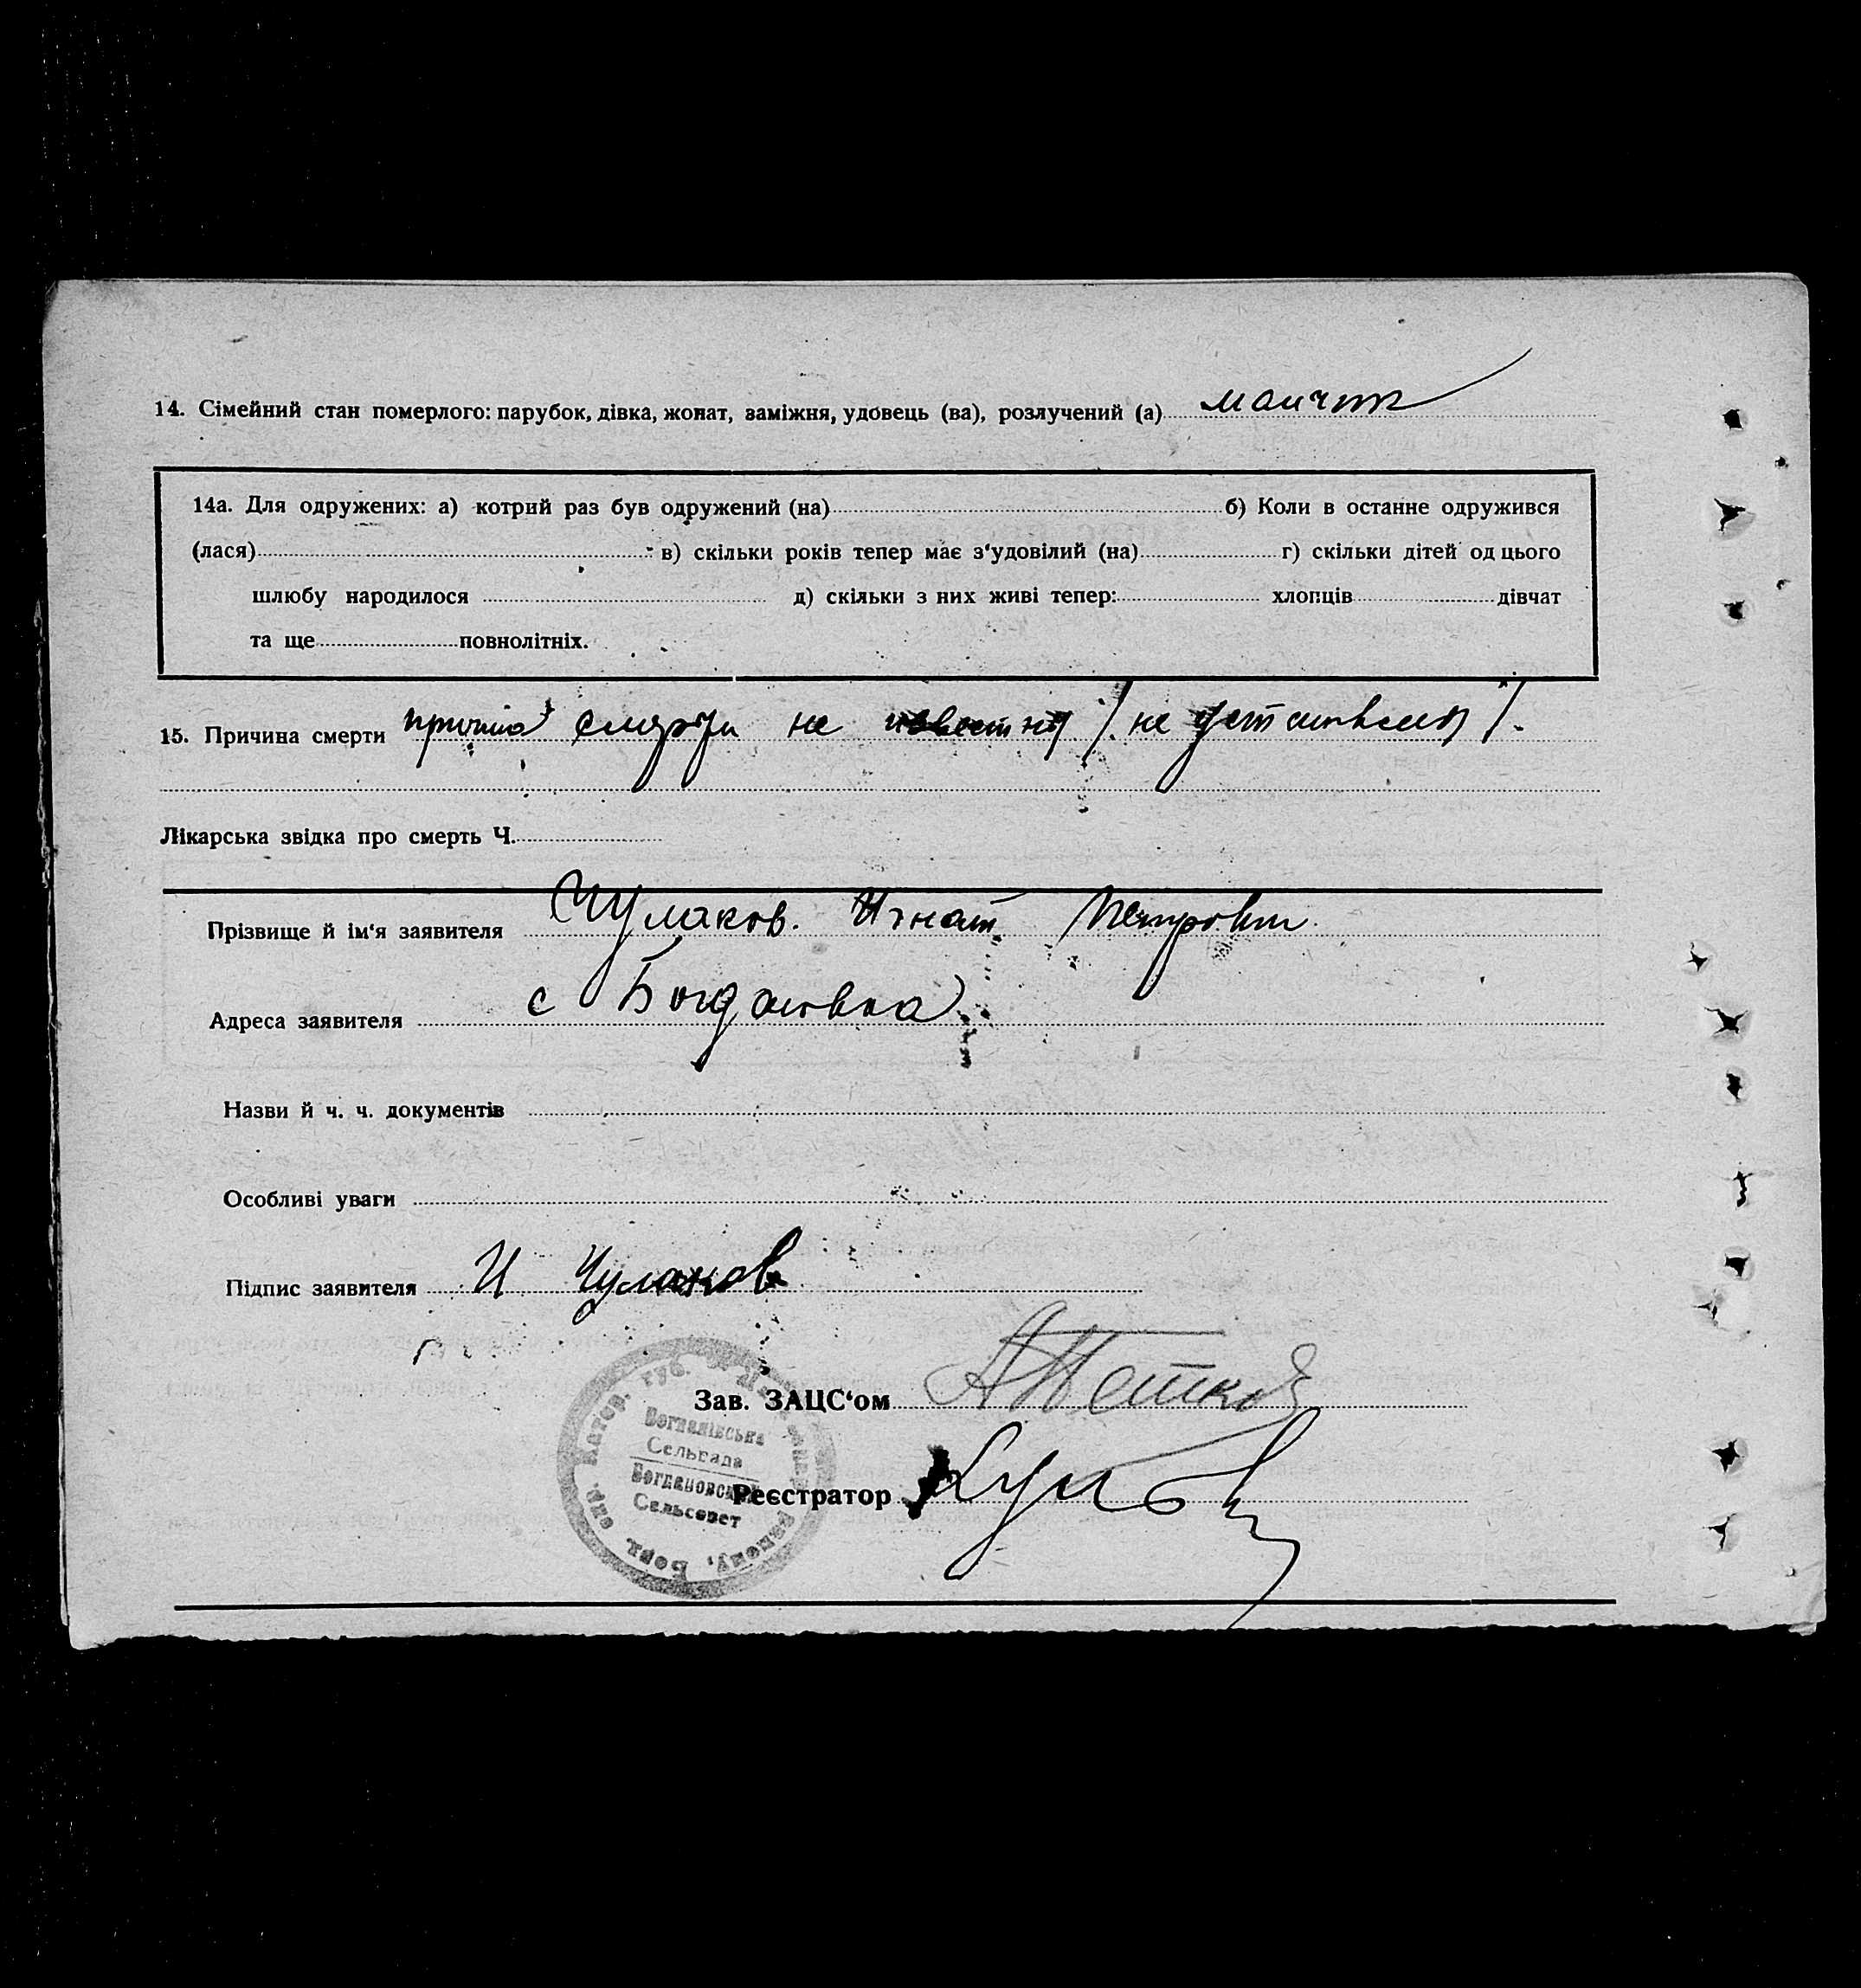 14. Сімейний стан померлого: парубок, дівка, жонат, заміжня, удовець (ва), розлучений (а)
14а. Для одружених: а) котрий раз був одружений (на) б) Коли в останне одружився
(лася) в) скільки років тепер має з'удовілий (на) г) скільки дітей од цього
шлюбу народилося д) скільки з них живі тепер: хлопців дівчат
та ще повнолітніх.
15. Причина смерти причина смерти не известна /не установлена/.
Лікарська звідка про смерть Ч.
Прізвище й ім'я заявителя Чулаков. Игнат Петрович
Адреса заявителя с Богдановка
Назви й ч. ч. документів
Особливі уваги
Підпис заявителя И Чулаков
Зав. ЗАЦС'ом
Богданівська
Сельрада
Богдановский
Сельсовет
Реєстратор